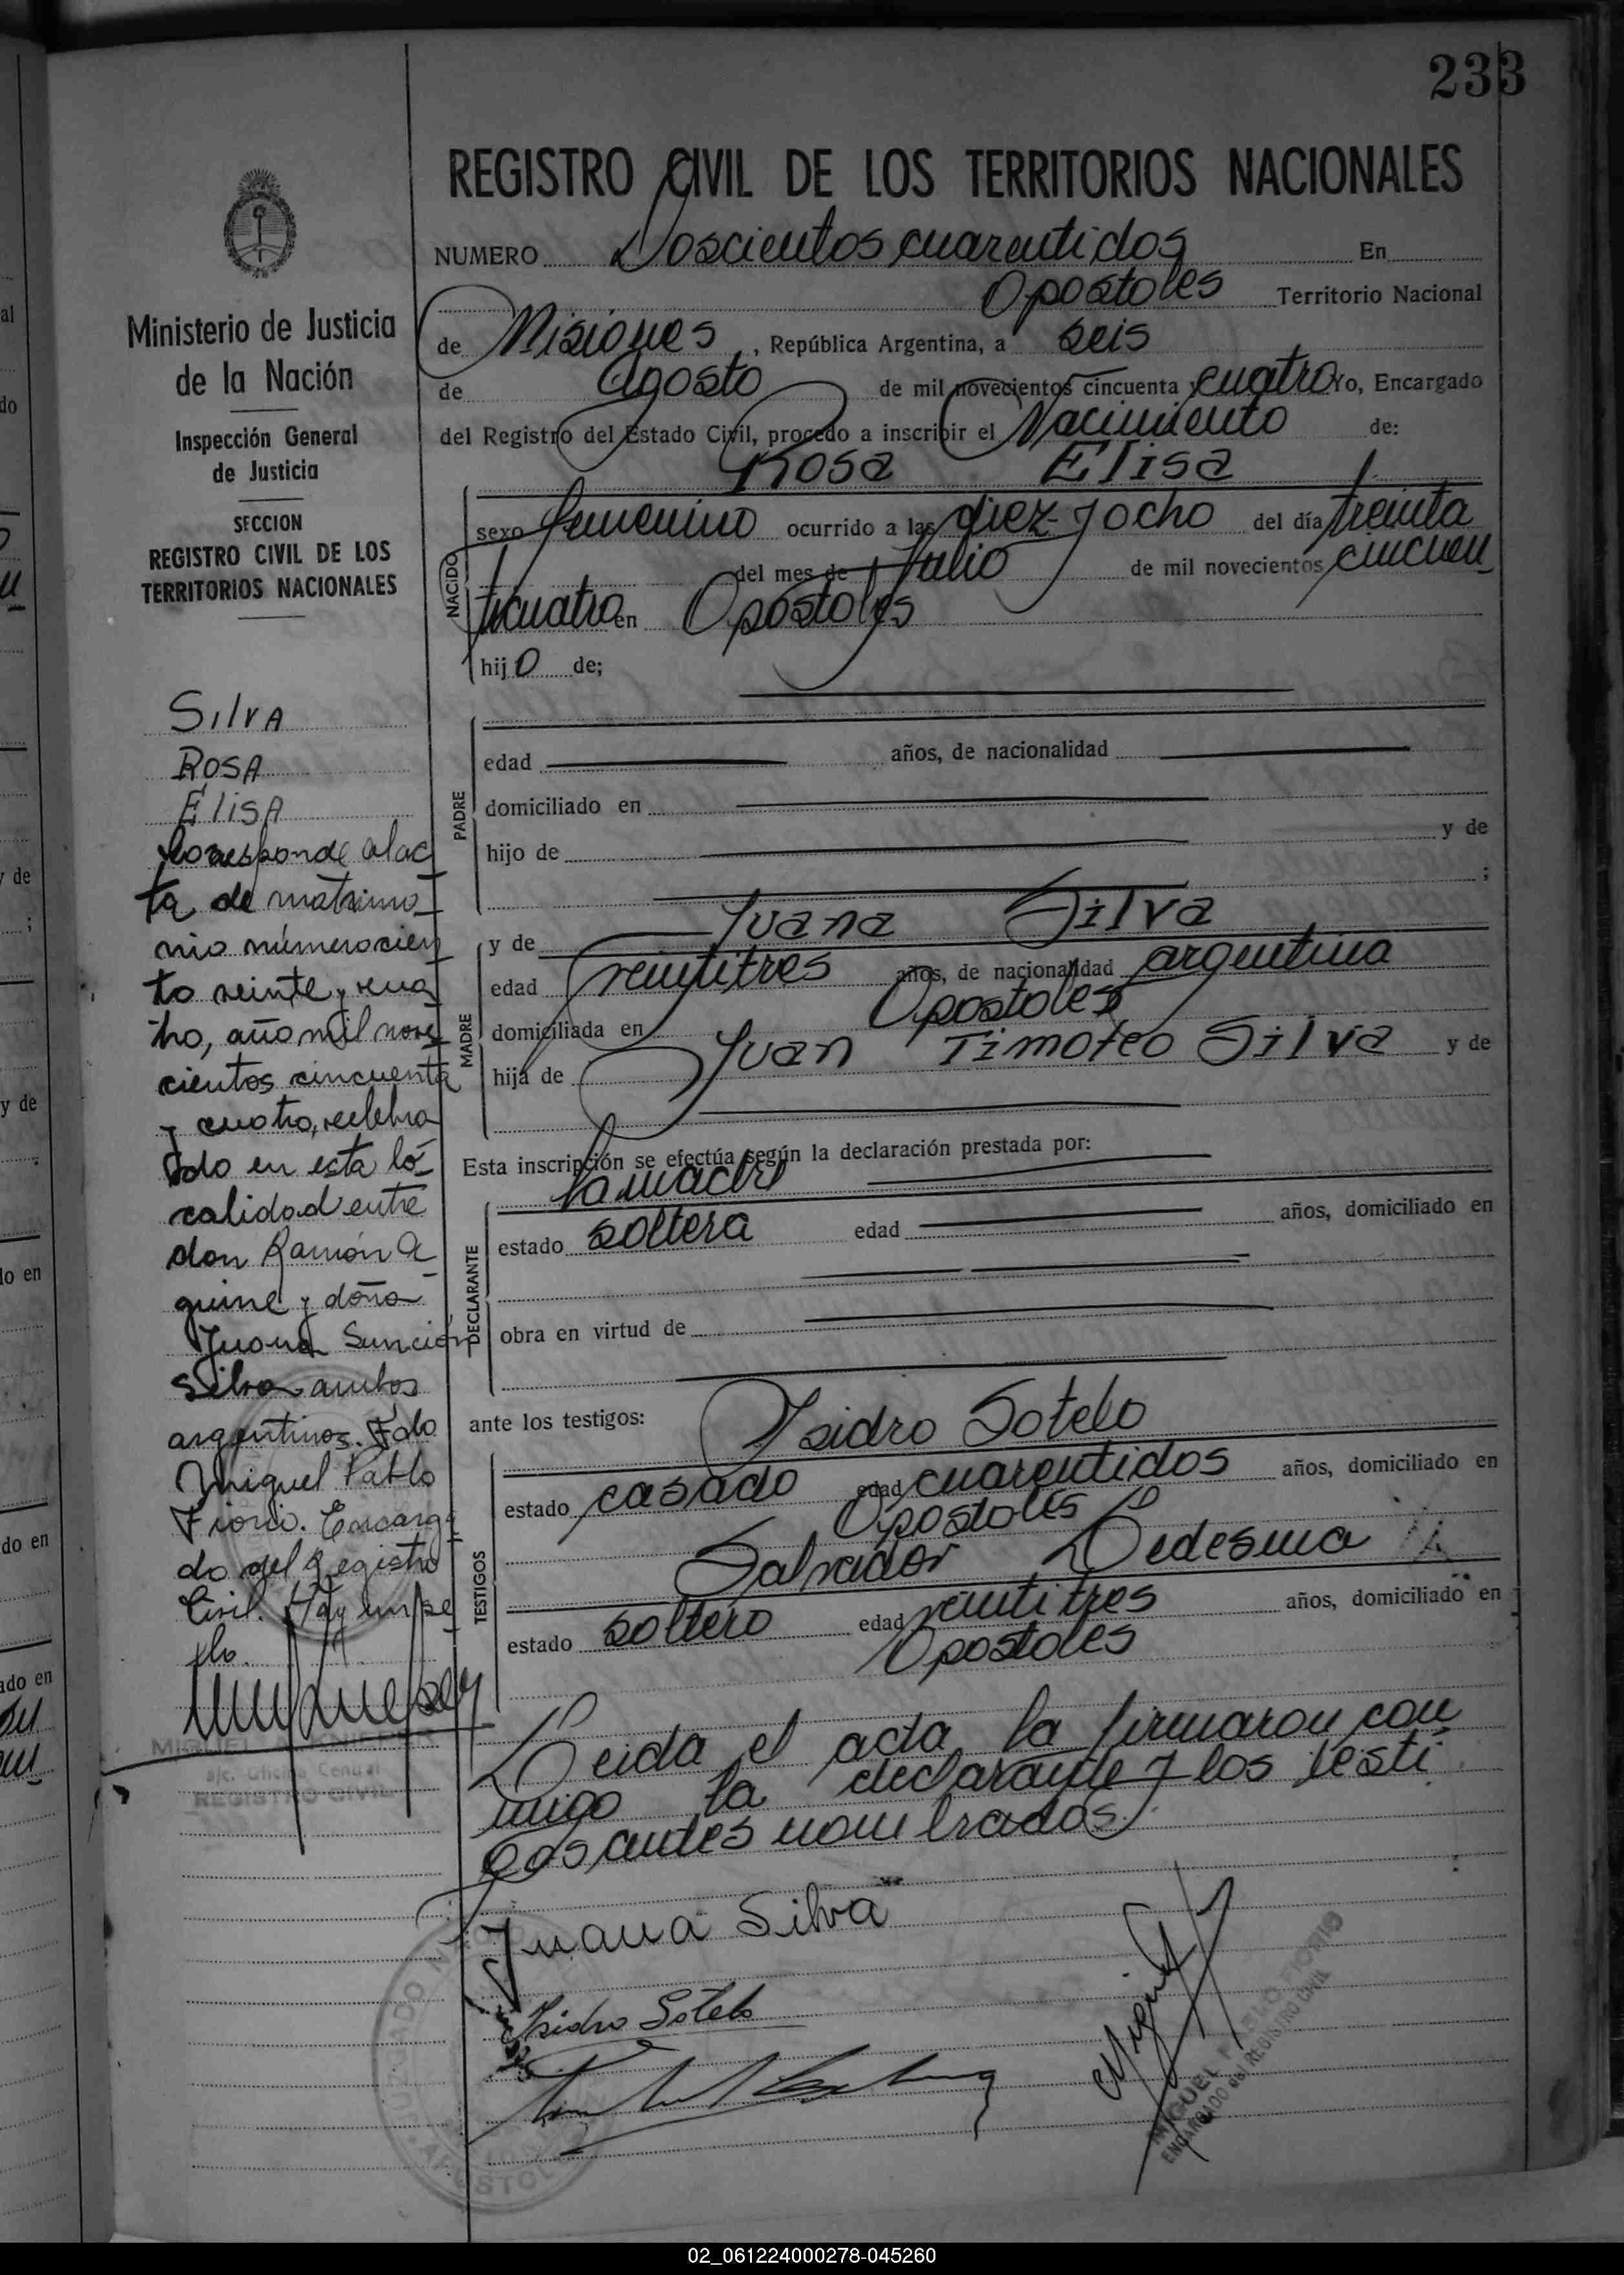 233
REGISTRO CIVIL DE LOS TERRITORIOS NACIONALES
NUMERO Doscientos cuarentidos En
Apostoles Territorio Nacional
de Misiones, República Argentina, a seis
de Agosto de mil novecientos cincuenta y cuatro Yo, Encargado
del Registro del Estado Civil, procedo a inscribir el Nacimiento de:
Rosa Elisa
NACIDO
sexo femenino ocurrido a las diez y ocho del día treinta
del mes de Julio de mil novecientos cincuen
ticuatro en Apostoles
hijo de;
PADRE
edad años, de nacionalidad
domiciliado en
hijo de y de
;
MADRE
y de Juana Silva
edad veintitres años, de nacionalidad argentina
domiciliada en Apostoles
hija de Juan Timoteo Silva y de
Esta inscripción se efectúa según la declaración prestada por:
la madre
DECLARANTE
estado soltera edad años, domiciliado en
obra en virtud de
ante los testigos: Isidro Sotelo
TESTIGOS
estado casado edad cuarentidos años, domiciliado en
Apostoles
Salvador Ledesma
estado soltero edad veintitres años, domiciliado en
Apostoles
Leida el acta la firmaron con
migo la declarante y los testi
gos antes nombrados.
Juana Silva
Isidro Sotelo
Miguel
MIGUEL PABLO FIORIO
ENCARGADO del REGISTRO CIVIL
Ministerio de Justicia
de la Nación
Inspección General
de Justicia
SECCION
REGISTRO CIVIL DE LOS
TERRITORIOS NACIONALES
SILVA
ROSA
ELISA
Corresponde al ac
ta de matrimo
nio número cien
to veinte y cua
tro, año mil nove
cientos cincuenta
y cuatro, celebra
do en esta lo
calidad entre
don Ramón A
quine y doña
Juana Sunción
Silva ambos
argentinos. Fdo
Miguel Pablo
Fiorio. Encarga
do del Registro
Civil. Hay un se
llo.
MIGUEL A. KNIEPER
a/c. Oficina Central
REGISTRO CIVIL
02_061224000278-045260